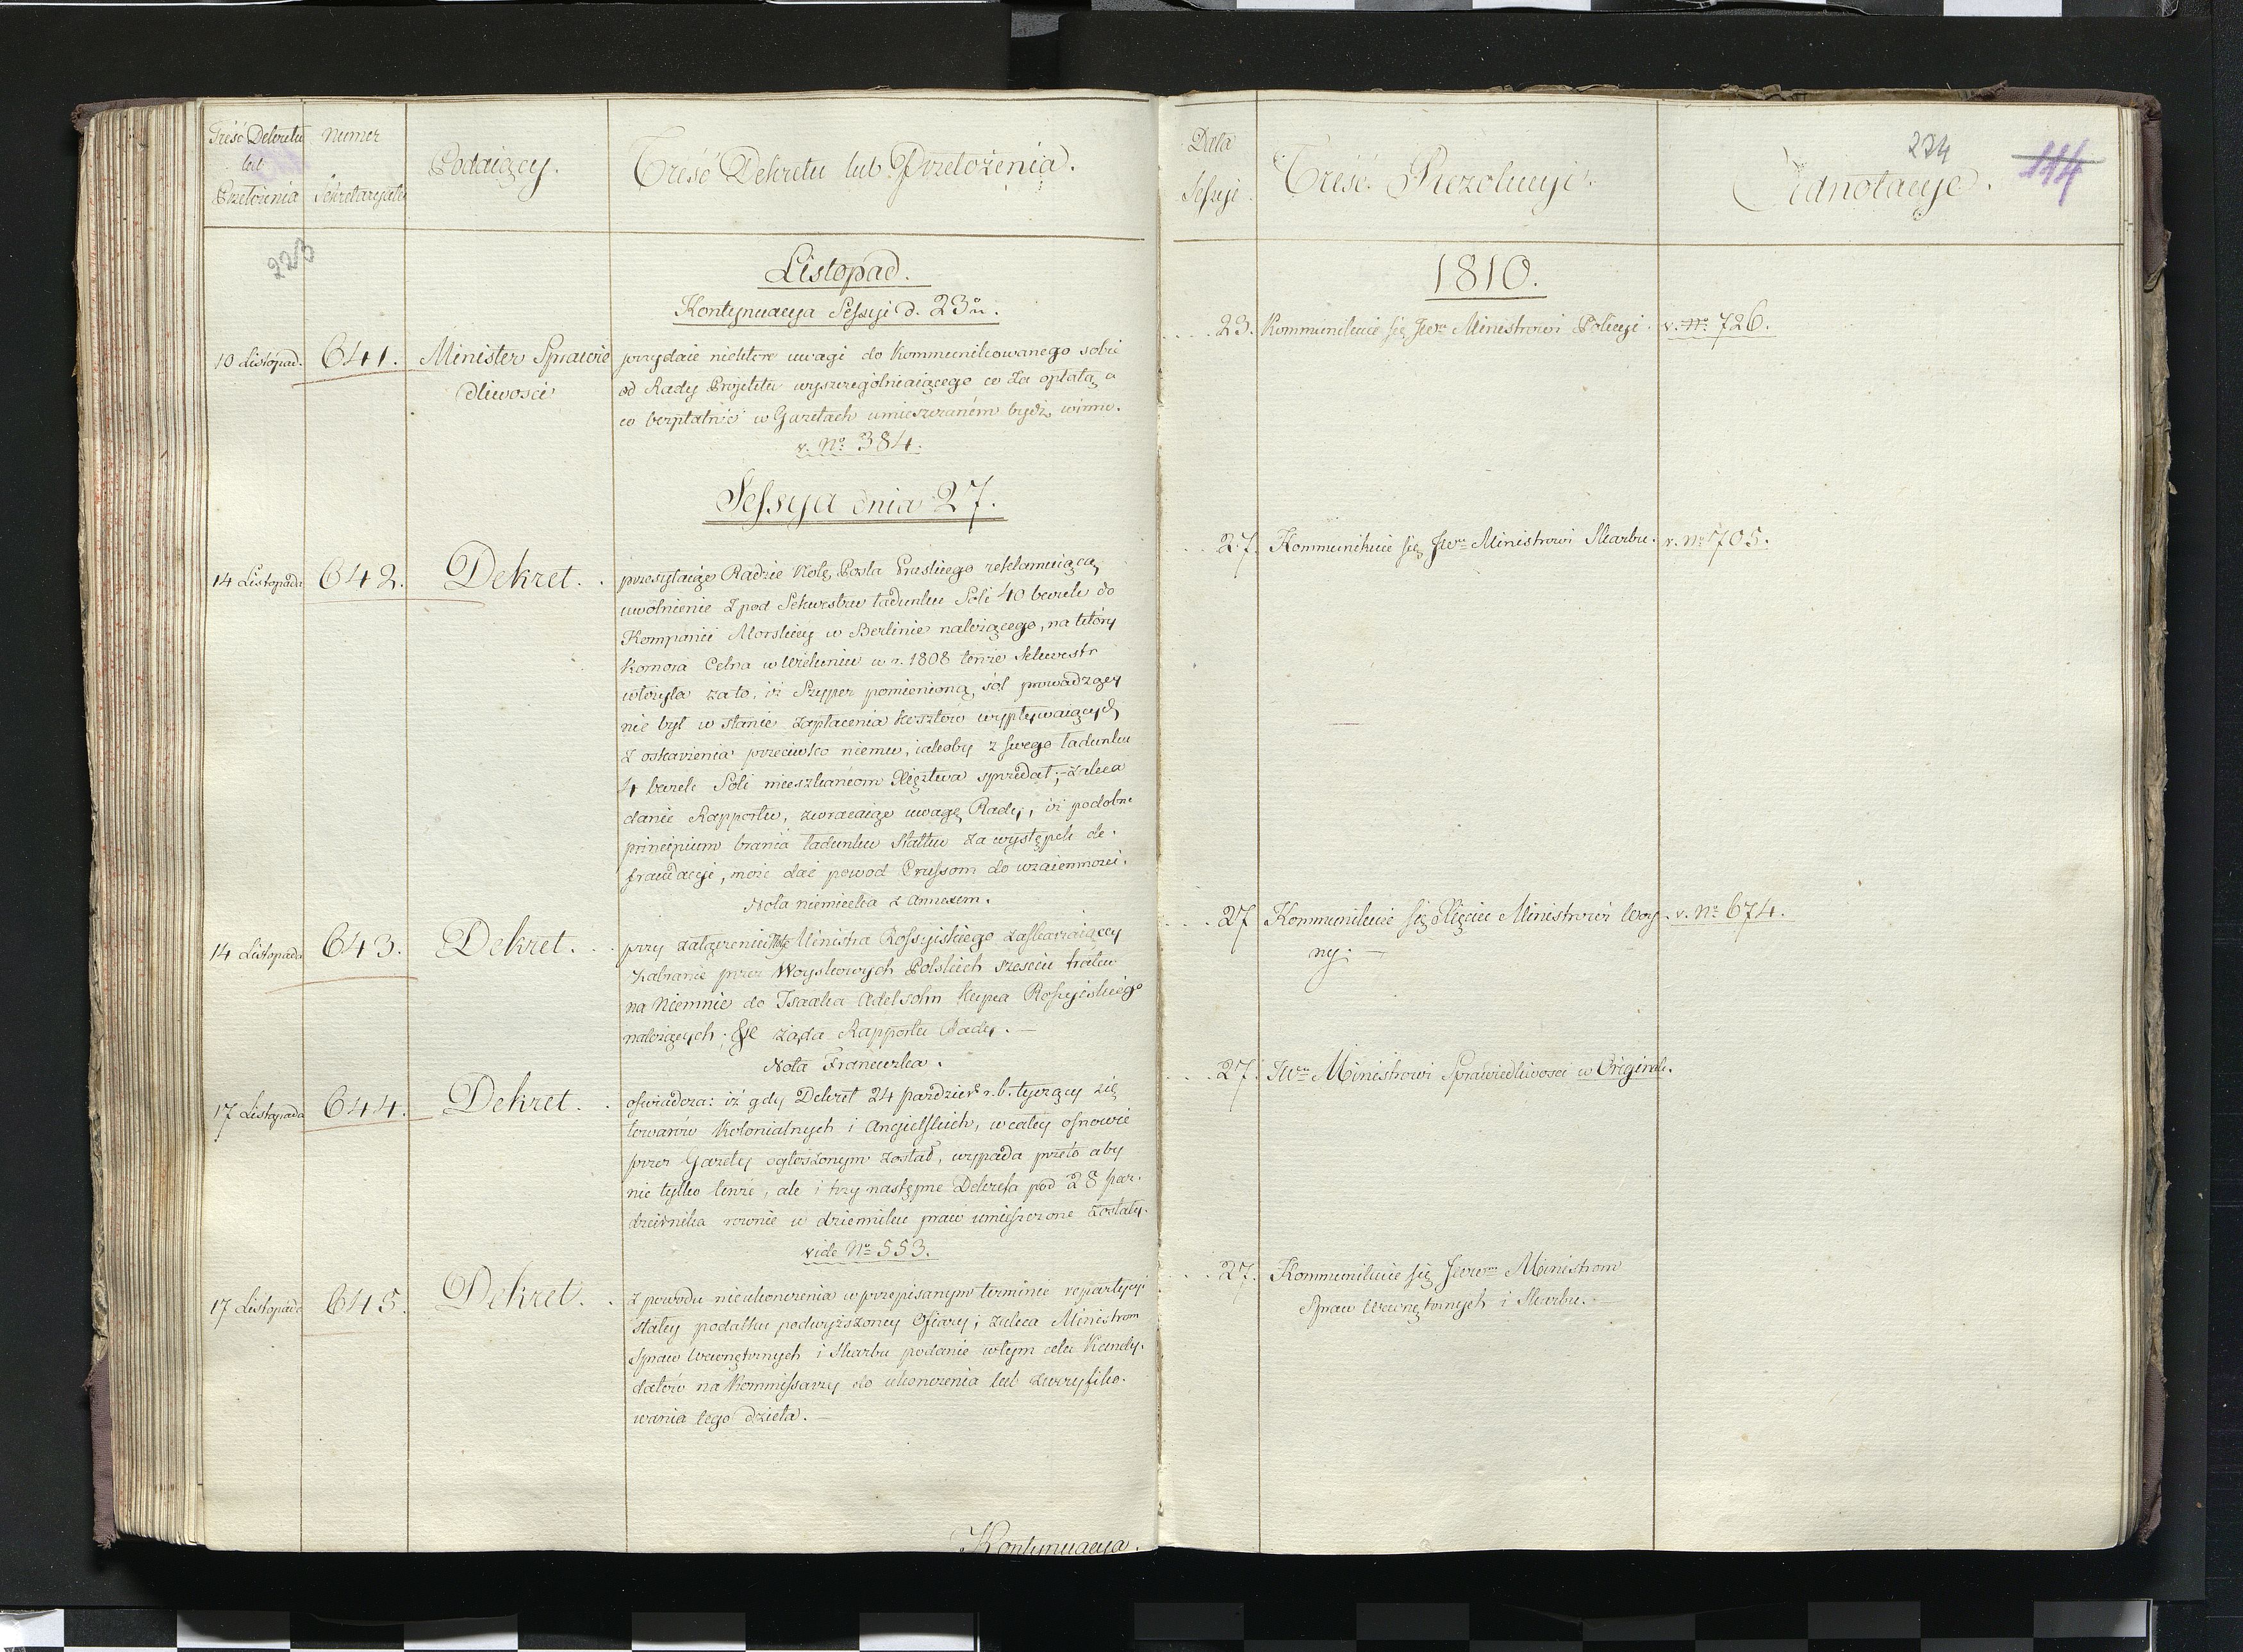 Treść Dekretu
lub
Przełożenia
Numer
Sekretaryatu
Podaiący.
Treść Dekretu lub Przełożenia.
223
Listopad.
Kontynuacya Sessyi d. 23º
10 Listopad. 641. Minister Sprawie
dliwości
przydaie niektóre uwagi do kommunikowanego sobie
od Rady Projektu wyszczegolniaiącego co za opłatą a
co bezpłatnie w Gazetach umieszczanem bydź winno.
v. Nº 384.
Sessya dnia 27.
14 Listopada 642. Dekret.
przesyłaiąc Radzie Notę Posła Pruskiego reklamuiącą
uwolnienie z pod Sekwestru ładunku Soli 40 beczek do
Kompanii Morskiey w Berlinie należącego, na który
Komora Celna w Wieluniu w r. 1808 tenże Sekwestr
włożyła za to, iż Szyper pomienioną sól prowadzący
nie był w stanie zapłacenia kosztów wypływaiących
z oskarżenia przeciwko niemu, iakoby z swego ładunku
4 beczek Soli mieszkańcom Xięztwa sprzedał; - zaleca
danie Rapportu, zwracaiąc uwagę Rady, iż podobne
principium brania ładunku Statku za występek de-
fraudacyi, może dać powod Prussom do wzaiemności.
Nota niemiecka z Annexem.
14 Listopada 643. Dekret.
przy załączeniu Noty Ministra Rossyiskiego zaskarżaiącey
zabranie przez Woyskowych Polskich sześciu tratew
na Niemnie do Isaaka Adelsohn kupca Rossyiskiego
należących; żąda Rapportu Rady. —
Nota Francuzka.
17 Listopada 644. Dekret.
oświadcza: iż gdy Dekret 24 październ. r. b. tyczący się
towarów kolonialnych i Angielskich, w całey osnowie
przez Gazety ogłoszonym został, wypada przeto aby
nie tylko tenże, ale i trzy następne Dekreta pod 28 paź-
dziernika rownie w dzienniku praw umieszczone zostały.
vide Nº 553.
17 Listopada 645. Dekret.
z powodu nieukończenia w przepisanym terminie repartycyi
stałey podatku podwyższoney Ofiary; zaleca Ministrom
Spraw Wewnętrznych i Skarbu podanie w tym celu Kandy-
datów na Kommissarzy do ukończenia lub zweryfiko-
wania tego dzieła. —
Kontynuacya.
Data
Sessyi
Treść Rezolucyi.
Adnotacye.
224
114
1810.
23. Kommunikuie się JWmu Ministrowi Policyi. v. Nº 726.
27. Kommunikuie się JWmu Ministrowi Skarbu. v. Nº 705.
27 Kommunikuie się Xięciu Ministrowi Woy- v. Nº 674.
ny. —
27. JWmu Ministrowi Sprawiedliwości w Originali.
27. Kommunikuie się JWWm Ministrom
Spraw Wewnętrznych i Skarbu. —